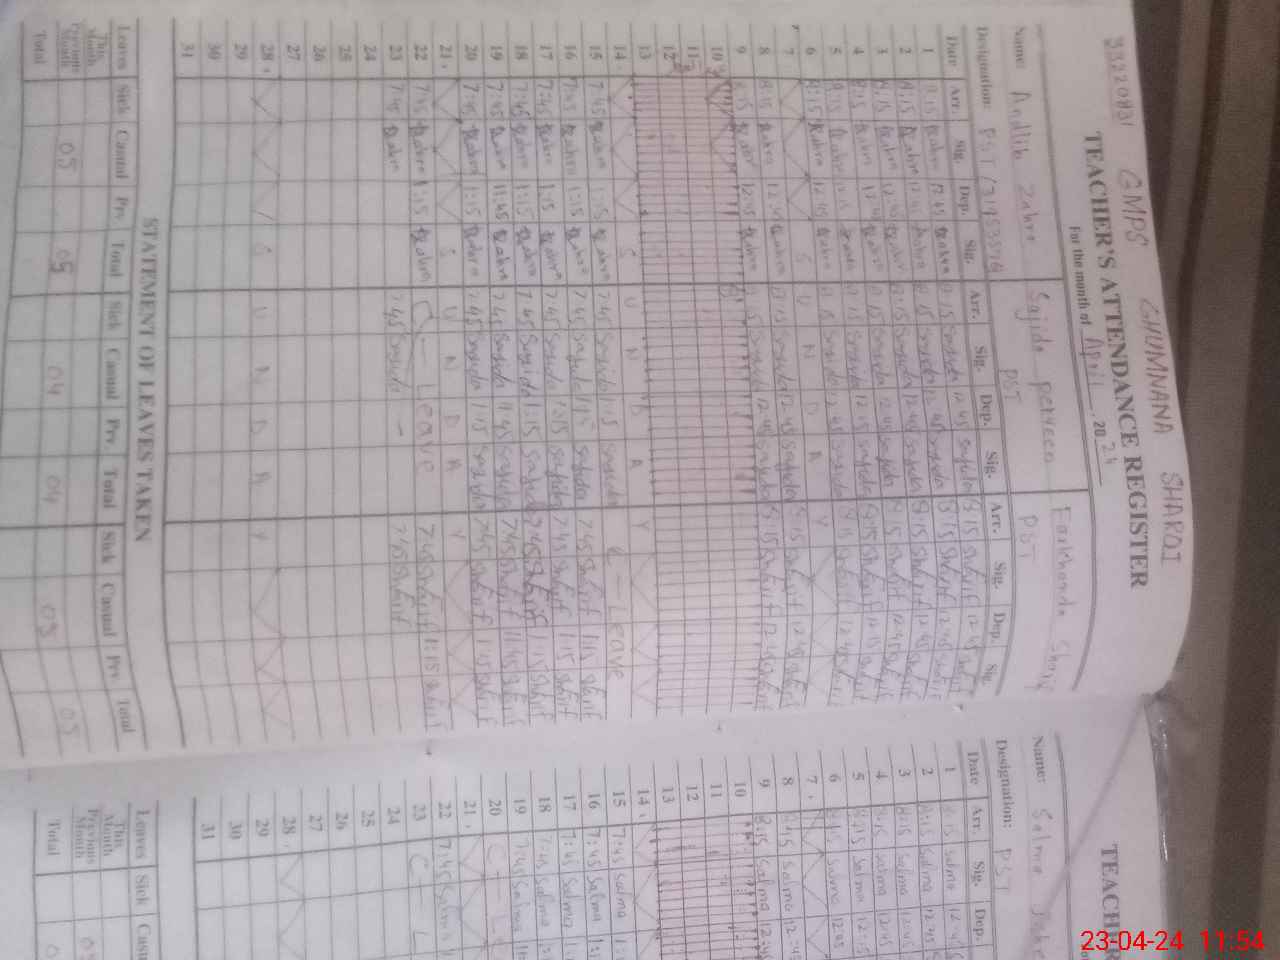 GMPS GHUMNANA SHARQI
TEACHER'S ATTENDANCE REGISTER
For the month of April, 2024
Name: Andlib Zahra Sajida perveen Farkhanda Sharif
Designation: PST PST PST
Date Arr. Sig. Dep. Sig. Arr. Sig. Dep. Sig. Arr. Sig. Dep. Sig.
1 8:15 Zahra 12:45 Zahra 8:15 Sajida 12:45 Sajida 8:15 Sharif 12:45 Sharif
2 8:15 Zahra 12:45 Zahra 8:15 Sajida 12:45 Sajida 8:15 Sharif 12:45 Sharif
3 8:15 Zahra 12:45 Zahra 8:15 Sajida 12:45 Sajida 8:15 Sharif 12:45 Sharif
4 8:15 Zahra 12:45 Zahra 8:15 Sajida 12:45 Sajida 8:15 Sharif 12:45 Sharif
5 8:15 Zahra 12:15 Zahra 8:15 Sajida 12:15 Sajida 8:15 Sharif 12:15 Sharif
6 8:15 Zahra 12:45 Zahra 8:15 Sajida 12:45 Sajida 8:15 Sharif 12:45 Sharif
7 S U N D A Y
8 8:15 Zahra 12:45 Zahra 8:15 Sajida 12:45 Sajida 8:15 Sharif 12:45 Sharif
9 8:15 Zahra 12:45 Zahra 8:15 Sajida 12:45 Sajida 8:15 Sharif 12:45 Sharif
10
11
12
13
14 S U N D A Y
15 7:45 Zahra 1:15 Zahra 7:45 Sajida 1:15 Sajida Leave
16 7:45 Zahra 1:15 Zahra 7:45 Sajida 1:15 Sajida 7:45 Sharif 1:15 Sharif
17 7:45 Zahra 1:15 Zahra 7:45 Sajida 1:15 Sajida 7:45 Sharif 1:15 Sharif
18 7:45 Zahra 1:15 Zahra 7:45 Sajida 1:15 Sajida 7:45 Sharif 1:15 Sharif
19 7:45 Zahra 11:45 Zahra 7:45 Sajida 11:45 Sajida 7:45 Sharif 11:45 Sharif
20 7:45 Zahra 1:15 Zahra 7:45 Sajida 1:15 Sajida 7:45 Sharif 1:15 Sharif
21 S U N D A Y
22 7:45 Zahra 1:15 Zahra C - Leave 7:45 Sharif 1:15 Sharif
23 7:45 Zahra 7:45 Sajida 7:45 Sharif
24
25
26
27
28 S U N D A Y
29
30
31
STATEMENT OF LEAVES TAKEN
Leaves Sick Casual Prv. Total Sick Casual Prv. Total Sick Casual Prv. Total
This Month
Previous Month 05 05 04 04 03 03
Total
TEACHER
Name: Salma
Designation: PST
Date Arr. Sig. Dep.
1 8:15 Salma 12:45
2 8:15 Salma 12:45
3 8:15 Salma 12:45
4 8:15 Salma 12:45
5 8:15 Salma 12:15
6 8:15 Salma 12:45
7
8 8:15 Salma 12:45
9 8:15 Salma 12:45
10
11
12
13
14
15 7:45 Salma
16 7:45 Salma
17 7:45 Salma
18 7:45 Salma
19 7:45 Salma
20 C - Le
21
22 7:45 Salma
23 C - L
24
25
26
27
28
29
30
31
Leaves Sick Casu
This Month
Previous Month
Total
23-04-24 11:54